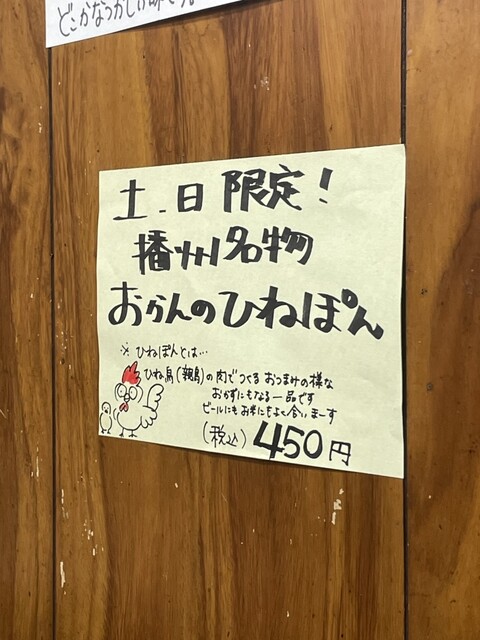 どこかなつかしい味です。
土.日限定！
播州名物
おかんのひねぽん
※ ひねぽんとは…
ひね鳥(親鳥)の肉でつくる おつまみの様な
おかずにもなる一品です
ビールにもお米にもよく合いまーす
(税込) 450円